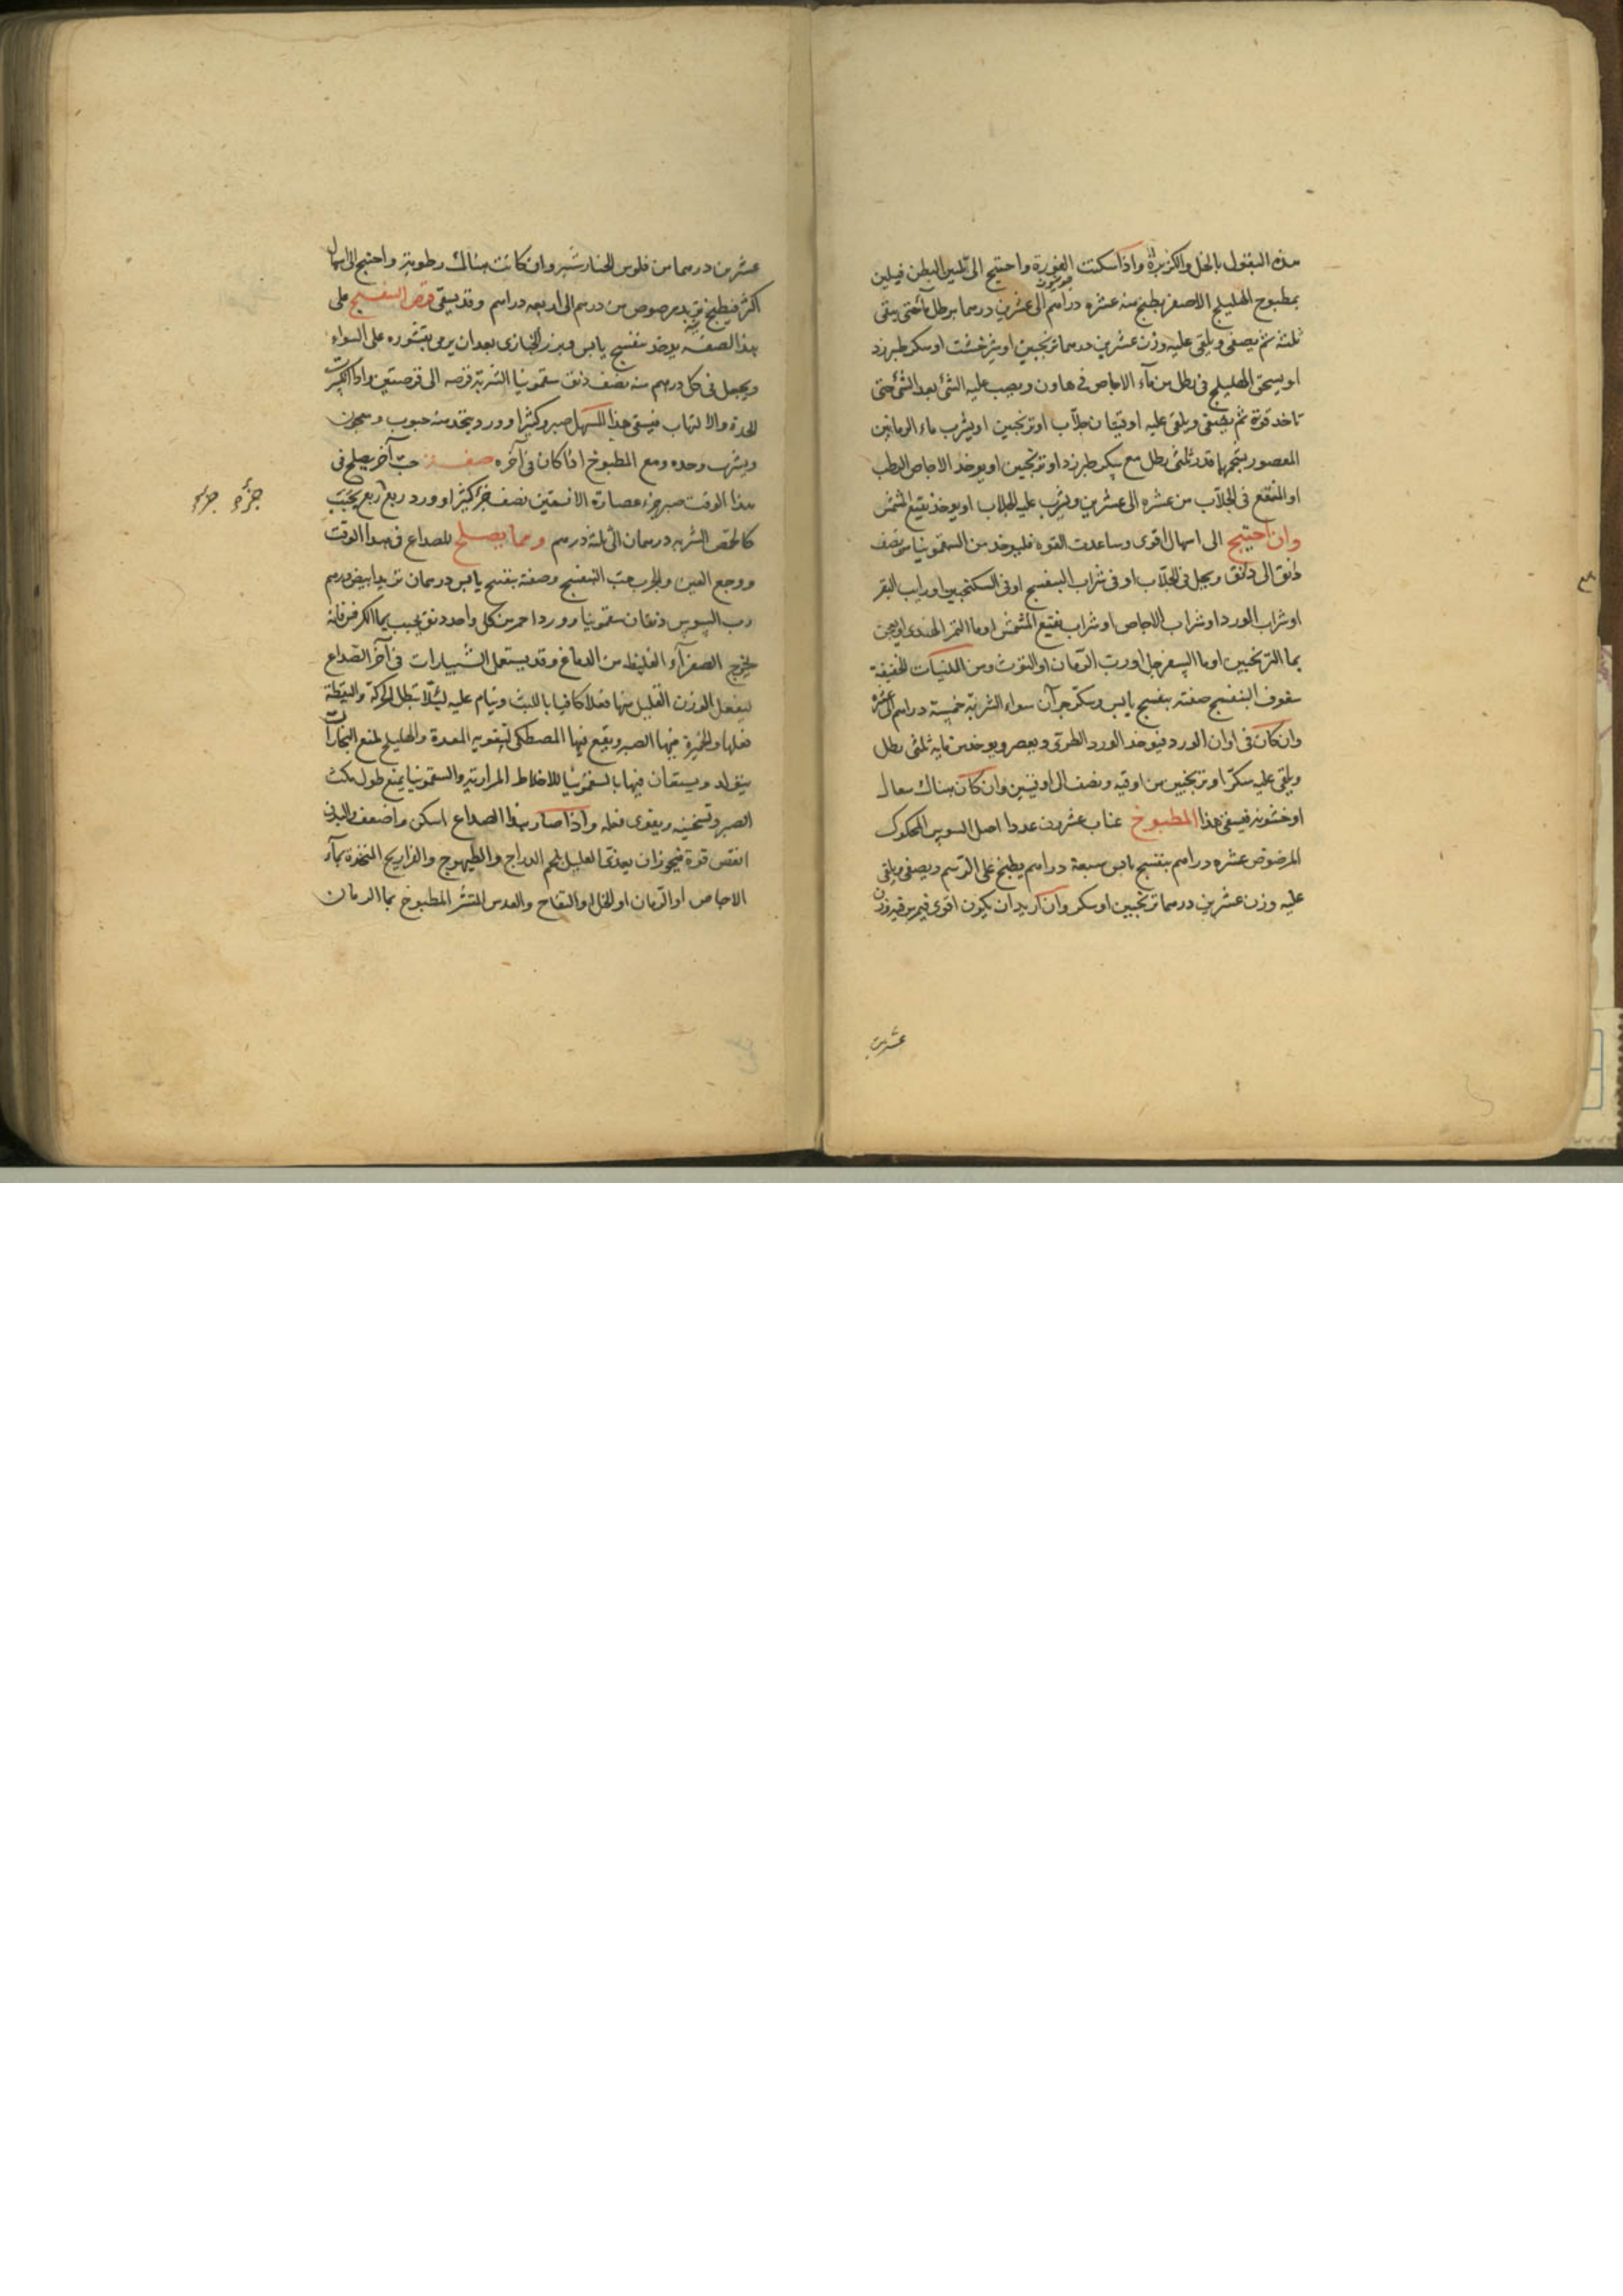 هذه البقول بالخل والكزبرة واذا سكنت الفورة واحتيج الى تليين البطن فيلين
بمطبوخ الهليلج الاصفر يطبخ منه عشره دراهم الى عشرين درهما برطل مآ حتى يبقى
ثلثه ثم يصفى ويلقى عليه وزن عشرين درهما ترنجبين او شيرخشت او سكر طبرزد
او يسحق الهليلج فى رطل من مآء الاجاص فى هاون ويصب عليه الشئ بعد الشئ حتى
تاخذ قوته ثم يصفى ويلقى عليه اوقيتان جلّاب او ترنجبين او يشرب ماء الرمانين
المعصور بشحمها قدر ثلثى رطل مع سكر طبرزد او ترنجبين او يوخذ الاجاص الرطب
او المنقع فى الجلّاب من عشره الى عشرين ويشرب عليه الجلاب او يوخذ نقيع المشمش
وان احتيج الى اسهال اقوى وساعدت القوه فليوخذ من السقمونيا من نصف
دانق الى دانق ويجعل فى الجلّاب او فى شراب البنفسج او فى السكنجبين او رايب البقر
او شراب الورد او شراب الاجاص او شراب نقيع المشمش او ما التمر الهندى او يعجن
بما الترنجبين او ما السفرجل او رب الرمان او التوث ومن الملينات الخفيفة
سفوف البنفسج صفته بنفسج يابس وسكر جزآن سواء الشربة خمسة دراهم الى عشره
وان كان فى اوان الورد فيوخذ الورد الطرى ويعصر ويوخذ من مايه ثلثى رطل
ويلقى عليه سكرّ او ترنجبين من اوقيه ونصف الى اوقيتين وان كان هناك سعال
او خشونة فيسقى هذا المطبوخ عناب عشرون عددا اصل السوس المحكوك
المرضوض عشره دراهم بنفسج يابس سبعة دراهم يطبخ على الرسم ويصفى ويلقى
عليه وزن عشرين درهما ترنجبين او سكر وان اريد ان يكون اقوى فيمرس فيه وزن
عشرين
عشرين درهما من فلوس الخيارشنبر وان كانت هناك رطوبة واحتيج الى اسهال
اكثر فيطبخ تربد مرضوض من درهم الى اربعه دراهم وقد يسقى قرص البنفسج على
هذا الصفه يوخذ بنفسج يابس وبزر الخبازى بعد ان يرمى بقشوره على السواء
ويجعل فى كل درهم منه نصف دنق سقمونيا الشربة قرصه الى قرصتين واذا انكسرت
الحدة والالتهاب فيسقى هذا المسهل صبر وكثيرا وورد ويتخذ منه حبوب ومعجون
ويشرب وحده ومع المطبوخ اذا كان فى آخره صفة حبّ آخر يصلح فى
هذا الوقت صبر جزء عصارة الافسنتين نصف جزء كثيرا وورد ربع ربع يحبّب
كالحمص الشربه درهمان الى ثلثه درهم ومما يصلح للصداع فى هذا الوقت
ووجع العين والجرب حب البنفسج وصفته بنفسج يابس درهمان تربد ابيض درهم
رب السوس دنقان سقمونيا وورد احمر من كل واحد دنق يحبب بما الكرفس فانه
يخرج الصفرآء الغليظ من الدماغ وقد يستعمل الشبيارات فى آخر الصداع
ليفعل الوزن القليل منها فعلا كافيا باللبث وينام عليه لئلّا تبطل الحركة واليقظة
فعلها والخميرة فيها الصبر ويقع فيها المصطكى لتقويه المعدة والهليلج لمنع البخارات
ويستعان فيها بالسقمونيا للاخلاط المراريه والسقمونيا يمنع طول مكث
الصبر وتسخينه ويقوى فعله واذا صار هذا الصداع اسكن واضعف والبدن
انقص قوة فيجوز ان يغذى العليل بلحم الدراج والطيهوج والفراريج المتخذة بمآء
الاجاص او الرمان او الخل والتفاح والعدس المقشر المطبوخ بما الرمان
جزؤ جزء